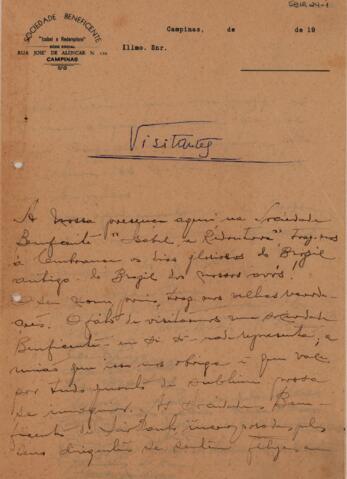 SBIR 24-1
SOCIEDADE BENEFICENTE
"Isabel a Redemptora"
SÉDE SOCIAL
RUA JOSÉ DE ALENCAR N.
CAMPINAS
Campinas, de de 19
Illmo. Snr.
Visitantes
A nossa presença aqui na Sociedade
Benficente "Isabel, a Redentora" traz-nos
á lembranca os dias gloriosos do Brasil
antigo - do Brasil dos nossos avós!
O seu nome, traz nos velhas
O fato de visitarmos uma sociedade
Benficente, em si só - nada representa; a
que isso nos obriga é que vale
por tudo quanto de sublime possa
se imaginar. As sociedades Bene-
ficente de pelos
seus dirigentes se sentem felizes em